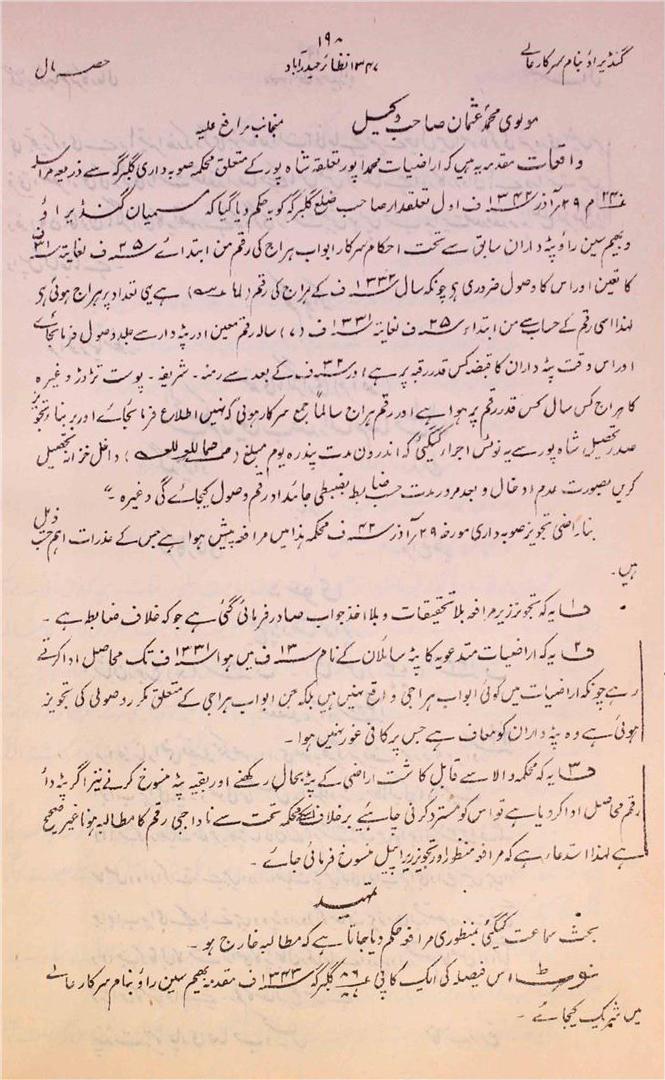 ۱۹۰
گنڈیراؤ بنام سرکار عالے ۱۳۴۷ نظائر حیدرآباد حصہ مال
مولوی محمد عثمان صاحب وکیل منجانب مرافع علیہ
واقعات مقدمہ یہ ہیں کہ اراضیات محمدا پور تعلقہ شاہ پور کے متعلق محکمہ صوبہ داری گلبرگہ سے ذریعہ مراسلہ
م ۲۹؍آذر ۱۳۴۲ ف اول تعلقدار صاحب ضلع گلبرگہ کو یہ حکم دیا گیا کہ مسمیان گنڈیراؤ
و بھیم سین راؤ پٹہ داران سابق سے تحت احکام سرکار ابواب ہراج کی رقم من ابتدائے ۲۵ ف لغایتہ ۳۱ ف
کا تعین اور اس کا وصول ضروری ہی چونکہ سال ۱۳۳۲ ف کے ہراج کی رقم ( ) ہے یہی تعداد پر ہراج ہوئی ہی
لہذا اسی رقم کے حساب سے من ابتداء ۲۵ ف لغایتہ ۱۳۳۱ ف (۷) سالہ رقم معین اور پٹہ دار سے جلد وصول فرمائے
اور اس وقت پٹہ داران کا قبضہ کس قدر رقبہ پر ہے اور ۳۲ ف کے بعد سے رمنہ ۔ شریفہ ۔ پوست تروڑ وغیرہ
کا ہراج کس سال کس قدر رقم پر ہوا ہے اور رقم ہراج سالماً جمع سرکار ہوئی کہ نہیں اطلاع فرمائی جائے اور بربناء تجویز
صدر تحصیل شاہ پور سے یہ نوٹس اجراء کیگئی کہ اندرون مدت پندرہ یوم مبلغ ( ) داخل خزانہ تحصیل
کریں بصورت عدم ادخال و بعد مرور مدت حسب ضابطہ بضبطی جائداد رقم وصول کیجائے گی وغیرہ ۔"
بناراضی تجویز صوبہ داری مورخہ ۲۹؍آذر ۴۲ ف محکمہ ہذا میں مرافعہ پیش ہوا ہے جس کے عذرات اہم حسب ذیل
ہیں۔
ف۱ یہ کہ تجویز زیر مرافعہ بلا تحقیقات و بلا اخذ جواب صادر فرمائی گئی ہے جو کہ خلاف ضابطہ ہے ۔
ف۲ یہ کہ اراضیات متدعویہ کا پٹہ سائلان کے نام ۱۳ ف میں ہوا ۱۳۳۱ ف تک محاصل ادا کرتے
رہے چونکہ اراضیات میں کوئی ابواب ہراجی واقع نہیں ہیں بلکہ جن ابواب ہراجی کے متعلق مکرر وصولی کی تجویز
ہوئی ہے وہ پٹہ داران کو معاف ہے جس پر کافی غور نہیں ہوا ۔
ف۳ یہ کہ محکمہ والا سے قابل کاشت اراضی کے پٹہ بحال رکھنے اور بقیہ پٹہ منسوخ کرنے نیز اگر پٹہ دار
رقم محاصل ادا کردیا ہے تو اس کو مسترد کرنی چاہیے برخلاف اسکے محکمہ تحت سے ناواجی رقم کا مطالبہ ہونا غیر صحیح
ہے لہذا استدعا ہے کہ مرافعہ منظور اور تجویز زیر اپیل منسوخ فرمائی جائے ۔
تمہید
بحث سماعت کیگئی بمنظوری مرافعہ حکم دیا جاتا ہے کہ مطالبہ خارج ہو ۔
نوٹ اس فیصلہ کی ایک کاپی گلبرگہ ۱۳۴۳ ف مقدمہ بھیم سین راؤ بنام سرکار عالے
میں شریک کیجائے ۔